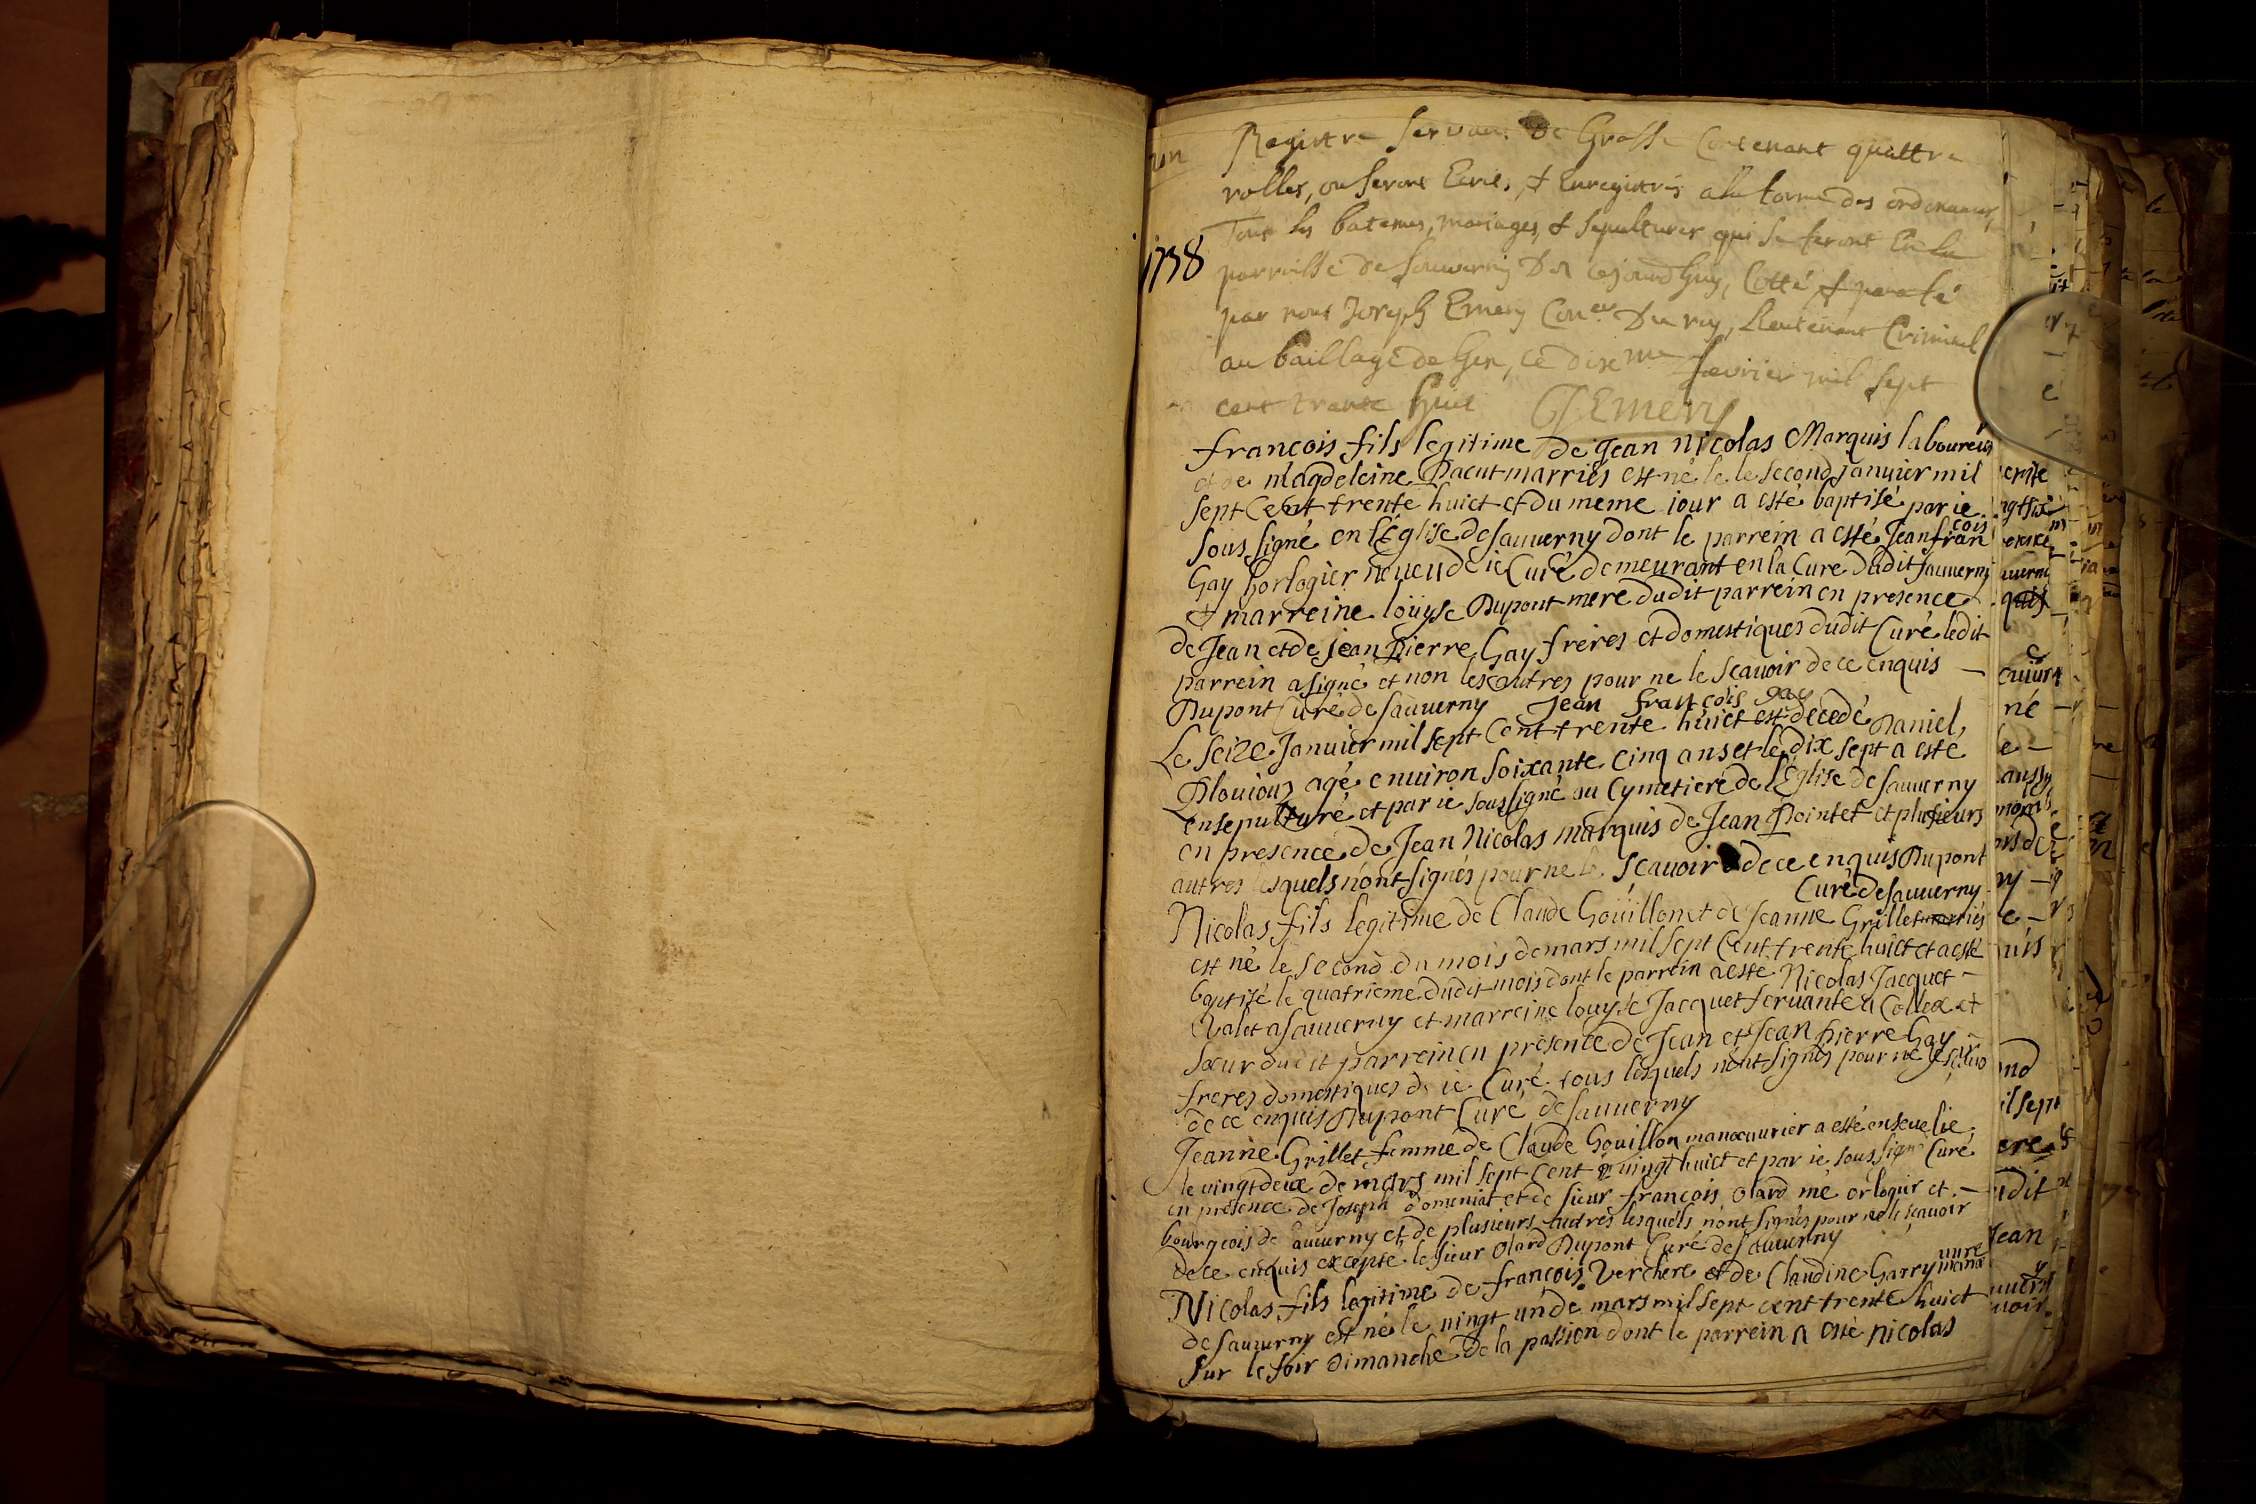 un
Registre servant de Grosse Contenant quattre
rolles, ou seront Ecrits, & Enregistrés a la forme des ordonances,
Tous les batemes, mariages, & sepultures qui se feront En la
parroisse de sauverny Des cejourdhuy, Cotté & paraffé
1738
par nous Joseph Emery Con.er Du roy, Lieutenant Criminel
au baillage de Gex, ce dix me fevrier mil sept
cent trente huit JEmery
francois fils legitime de Jean nicolas Marquis laboureur
et de magdeleine Dacut marriés est né le le second januier mil
sept Cent trente huict et du meme jour a esté baptisé par ie
sous signé en l'Église de sauuerny dont le parrein a esté Jean fran
cois
Gay horlogier neueu de ie Curé demeurant en la Cure dudit sauuerny
& marreine loüyse Dupont mere dudit parrein en presence
de Jean et de jean pierre Gay frères et domestiques dudit Curé ledit
parrein a signé et non les autres pour ne le scauoir de ce enquis —
Dupont Curé de sauuerny Jean françois gay
Le seize Januier mil sept Cent trente huict est decedé Daniel
Plouiouz agé enuiron soixante cinq ans et le dix sept a este
ensepulturé et par ie sous signé au Cymetiere de l'Église de sauuerny
en presence de Jean Nicolas marquis de Jean Pointet et plusieurs
autres lesquels n'ont signés pour ne le scauoir de ce enquis Dupont
Curé de sauuerny
Nicolas fils legitime de Claude Goüillon et de Jeanne Grillet marriés
est né le second du mois de mars mil sept Cent trente huict et a esté
baptisé le quatrieme dudit mois dont le parrein a esté Nicolas Jacquet —
Valet a sauuerny et marreine louyse Jacquet seruante a Collex et
sœur dudit parrein en presence de Jean et Jean pierre Gay —
freres domestiques de ie Curé tous lesquels n'ont signés pour ne le scauo
ir
de ce enquis Dupont Curé de sauuerny
Jeanne Grillet femme de Claude Gouillon manœuurier a esté enseuelie
le vingt deux de mars mil sept Cent vingt huict et par ie sous signé Curé
en presence de Joseph domeniat et de sieur françois olard me orlogir et —
bourgeois de sauuerny et de plusieurs autres lesquels n'ont signés pour ne le scauoir
de ce enquis excepté le sieur olard Dupont Curé de sauuerny
Nicolas fils legitime de françois Verchere et de Claudine Garry manœ
uure
de sauuerny est né le vingt un de mars mil sept cent trente huict
sur le soir dimanche de la passion dont le parrein a esté nicolas